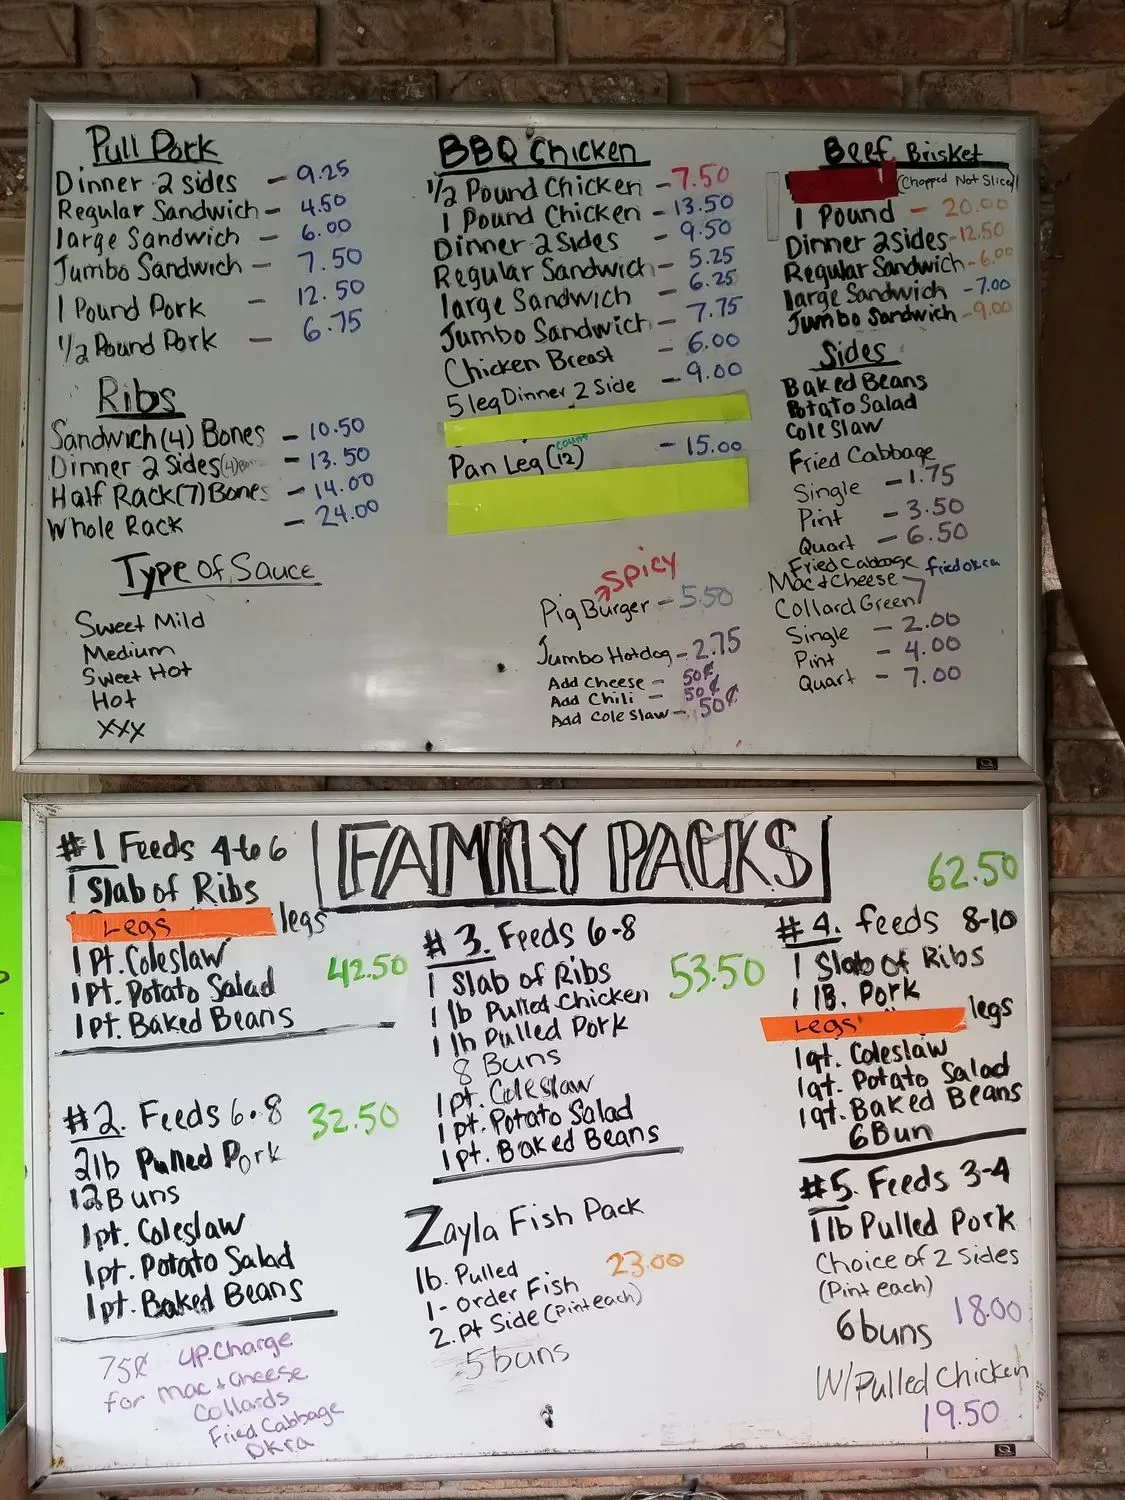 Pull Pork
Dinner 2 sides - 9.25
Regular Sandwich - 4.50
large Sandwich - 6.00
Jumbo Sandwich - 7.50
1 Pound Pork - 12.50
1/2 Pound Pork - 6.75
Ribs
Sandwich (4) Bones - 10.50
Dinner 2 Sides (4) - 13.50
Half Rack (7) Bones - 14.00
Whole Rack - 24.00
Type of Sauce
Sweet Mild
Medium
Sweet Hot
Hot
XXX
BBQ Chicken
1/2 Pound Chicken - 7.50
1 Pound Chicken - 13.50
Dinner 2 Sides - 9.50
Regular Sandwich - 5.25
large Sandwich - 6.25
Jumbo Sandwich - 7.75
Chicken Breast - 6.00
5 leg Dinner 2 Side - 9.00
count
Pan Leg (12) - 15.00
Spicy
Pig Burger - 5.50
Jumbo Hotdog - 2.75
Add Cheese - 50¢
Add Chili - 50¢
Add Cole Slaw - 50¢
Beef Brisket
(Chopped Not Slice)
1 Pound - 20.00
Dinner 2 Sides - 12.50
Regular Sandwich - 6.00
large Sandwich - 7.00
Jumbo Sandwich - 9.00
Sides
Baked Beans
Potato Salad
Cole Slaw
Fried Cabbage
Single - 1.75
Pint - 3.50
Quart - 6.50
Fried Cabbage fried okra
Mac & Cheese
Collard Green
Single - 2.00
Pint - 4.00
Quart - 7.00
FAMILY PACKS
#1 Feeds 4 to 6
1 Slab of Ribs
Legs legs
1 Pt. Coleslaw 42.50
1 pt. Potato Salad
1 pt. Baked Beans
#2. Feeds 6-8 32.50
2 lb Pulled Pork
12 Buns
1 pt. Coleslaw
1 pt. Potato Salad
1 pt. Baked Beans
75¢ up.Charge
for Mac & Cheese
Collards
Fried Cabbage
Okra
#3. Feeds 6-8
1 Slab of Ribs 53.50
1 lb Pulled Chicken
1 lb Pulled Pork
8 Buns
1 pt. Coleslaw
1 pt. Potato Salad
1 pt. Baked Beans
Zayla Fish Pack
1b. Pulled 23.00
1 - Order Fish
2. pt Side (Pint each)
5 buns
62.50
#4. feeds 8-10
1 Slab of Ribs
1 lB. Pork
Legs legs
1 qt. Coleslaw
1 qt. Potato Salad
1 qt. Baked Beans
6 Bun
#5. Feeds 3-4
1 lb Pulled Pork
Choice of 2 Sides
(Pint each)
6 buns 18.00
W/Pulled Chicken
19.50